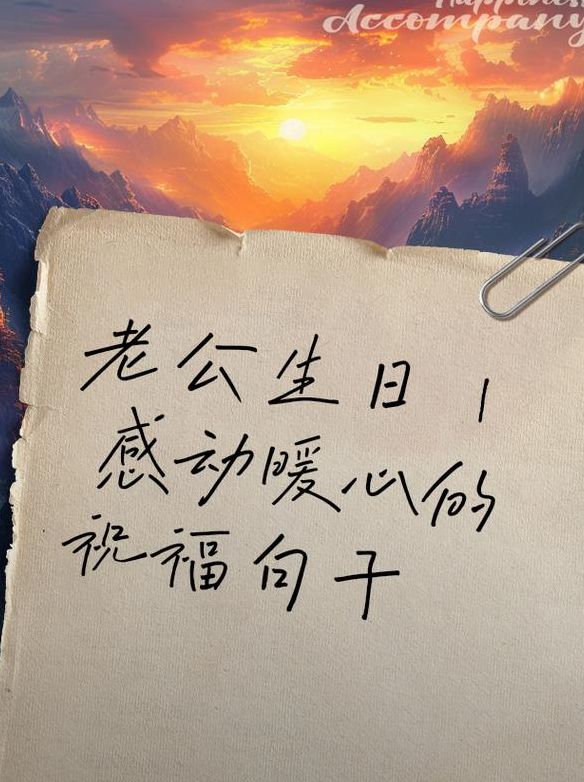 Happiness
Accompany
老公生日丨
感动暖心的
祝福句子